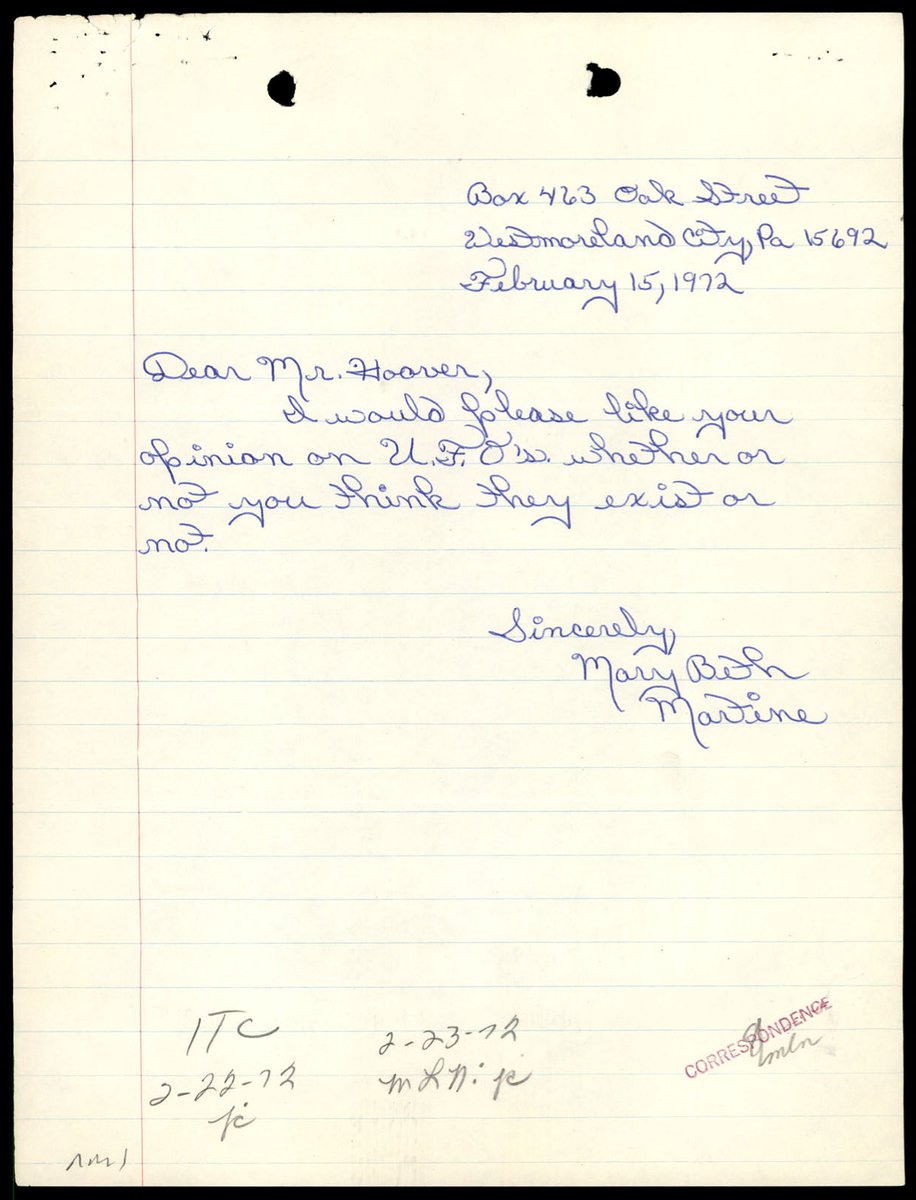 Box 463 Oak Street
Westmoreland City, Pa 15692
February 15, 1972
Dear Mr. Hoover,
I would please like your
opinion on U.F.O's. whether or
not you think they exist or
not.
Sincerely,
Mary Beth
Martine
ITC
2-22-72
jc
2-23-72
MLN:jc
CORRESPONDENCE
mln